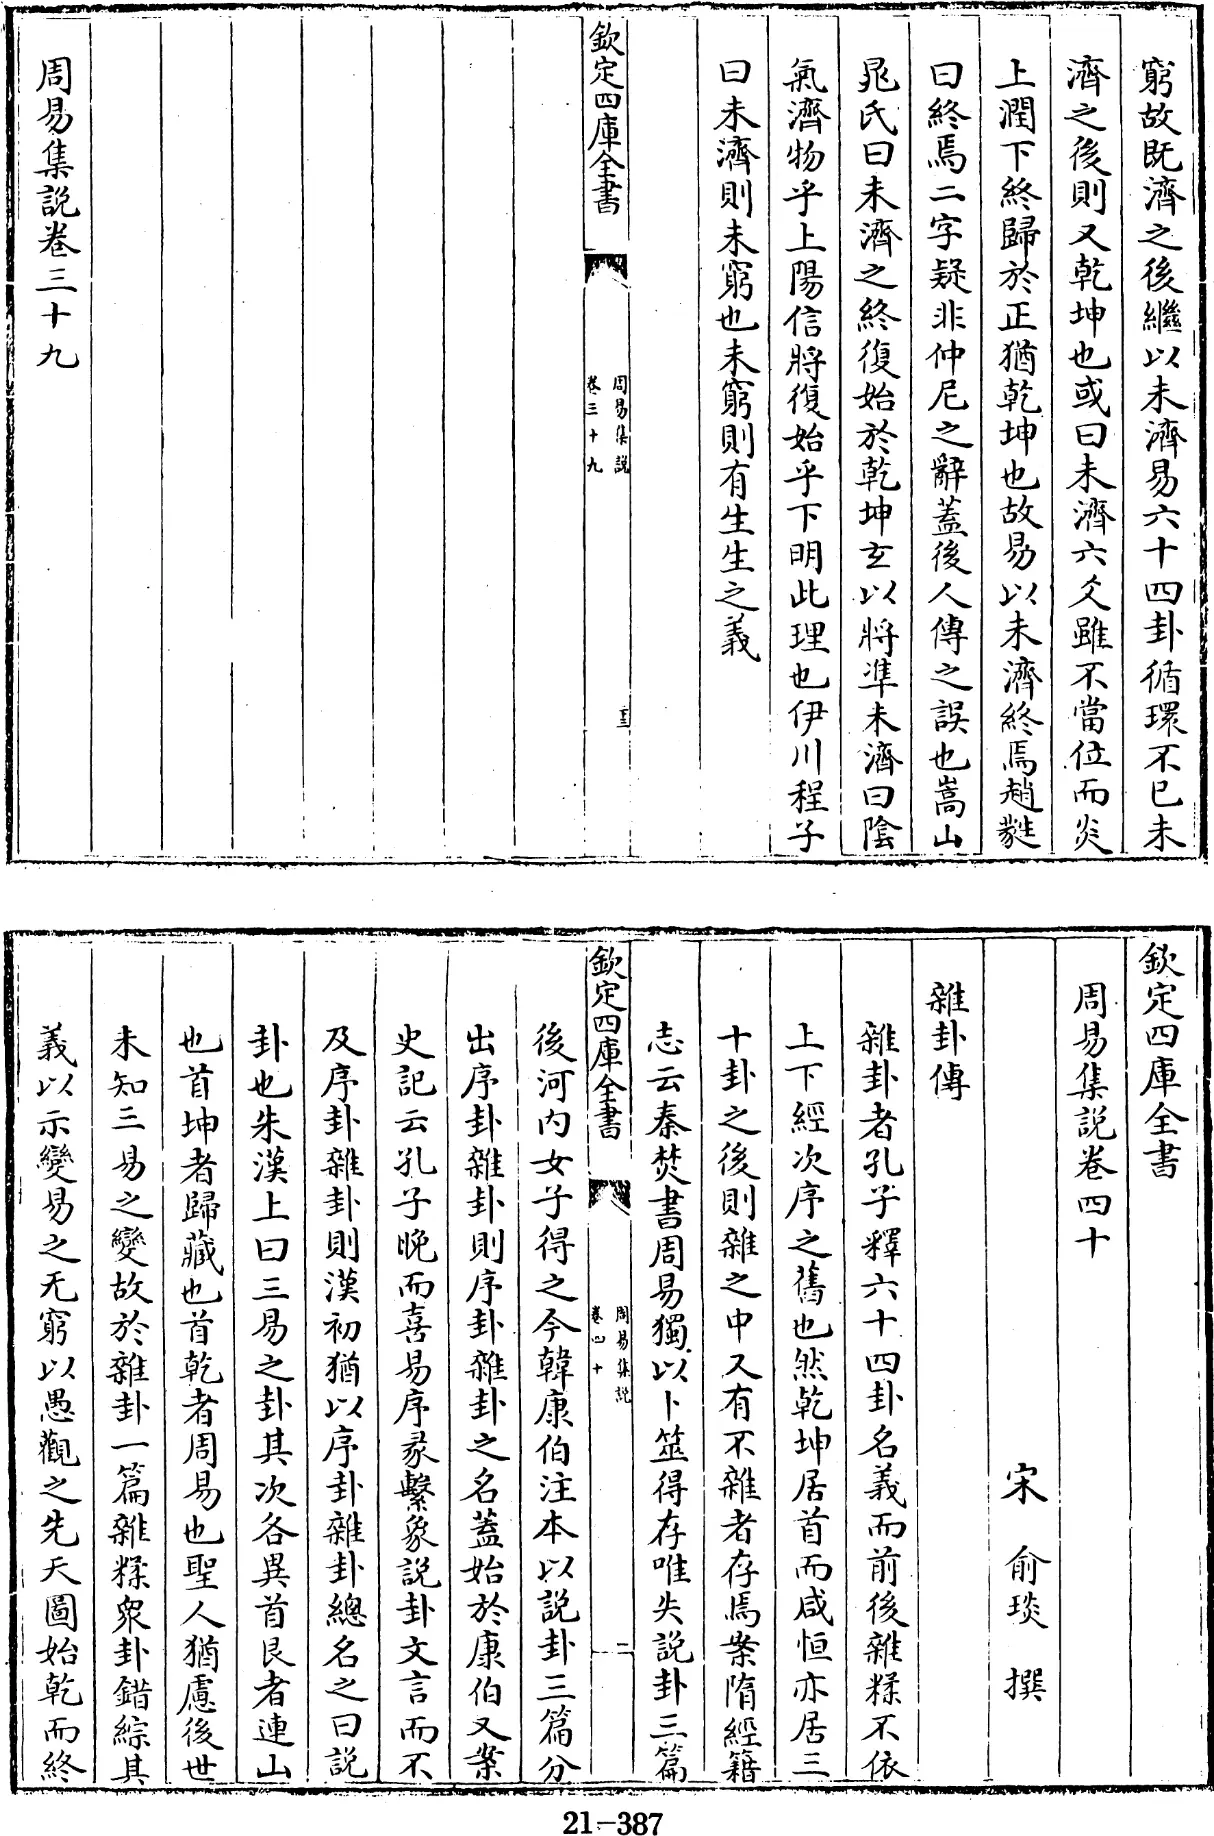 窮故既濟之後繼以未濟易六十四卦循環不已未
濟之後則又乾坤也或曰未濟六爻雖不當位而炎
上潤下終歸於正猶乾坤也故易以未濟終焉趙㲄
曰終焉二字疑非仲尼之辭蓋後人傳之誤也嵩山
晁氏曰未濟之終復始於乾坤玄以將準未濟曰陰
氣濟物乎上陽信將復始乎下明此理也伊川程子
曰未濟則未窮也未窮則有生生之義
欽定四庫全書
周易集說
卷三十九
周易集說卷三十九
欽定四庫全書
周易集說卷四十
宋 俞琰 撰
雜卦傳
雜卦者孔子釋六十四卦名義而前後雜糅不依
上下經次序之舊也然乾坤居首而咸恒亦居三
十卦之後則雜之中又有不雜者存焉案隋經籍
志云秦焚書周易獨以卜筮得存唯失說卦三篇
欽定四庫全書
周易集說
卷四十
二
後河內女子得之今韓康伯注本以說卦三篇分
出序卦雜卦則序卦雜卦之名蓋始於康伯又案
史記云孔子晚而喜易序彖繫象說卦文言而不
及序卦雜卦則漢初猶以序卦雜卦總名之曰說
卦也朱漢上曰三易之卦其次各異首艮者連山
也首坤者歸藏也首乾者周易也聖人猶慮後世
未知三易之變故於雜卦一篇雜糅衆卦錯綜其
義以示變易之无窮以愚觀之先天圖始乾而終
21-387